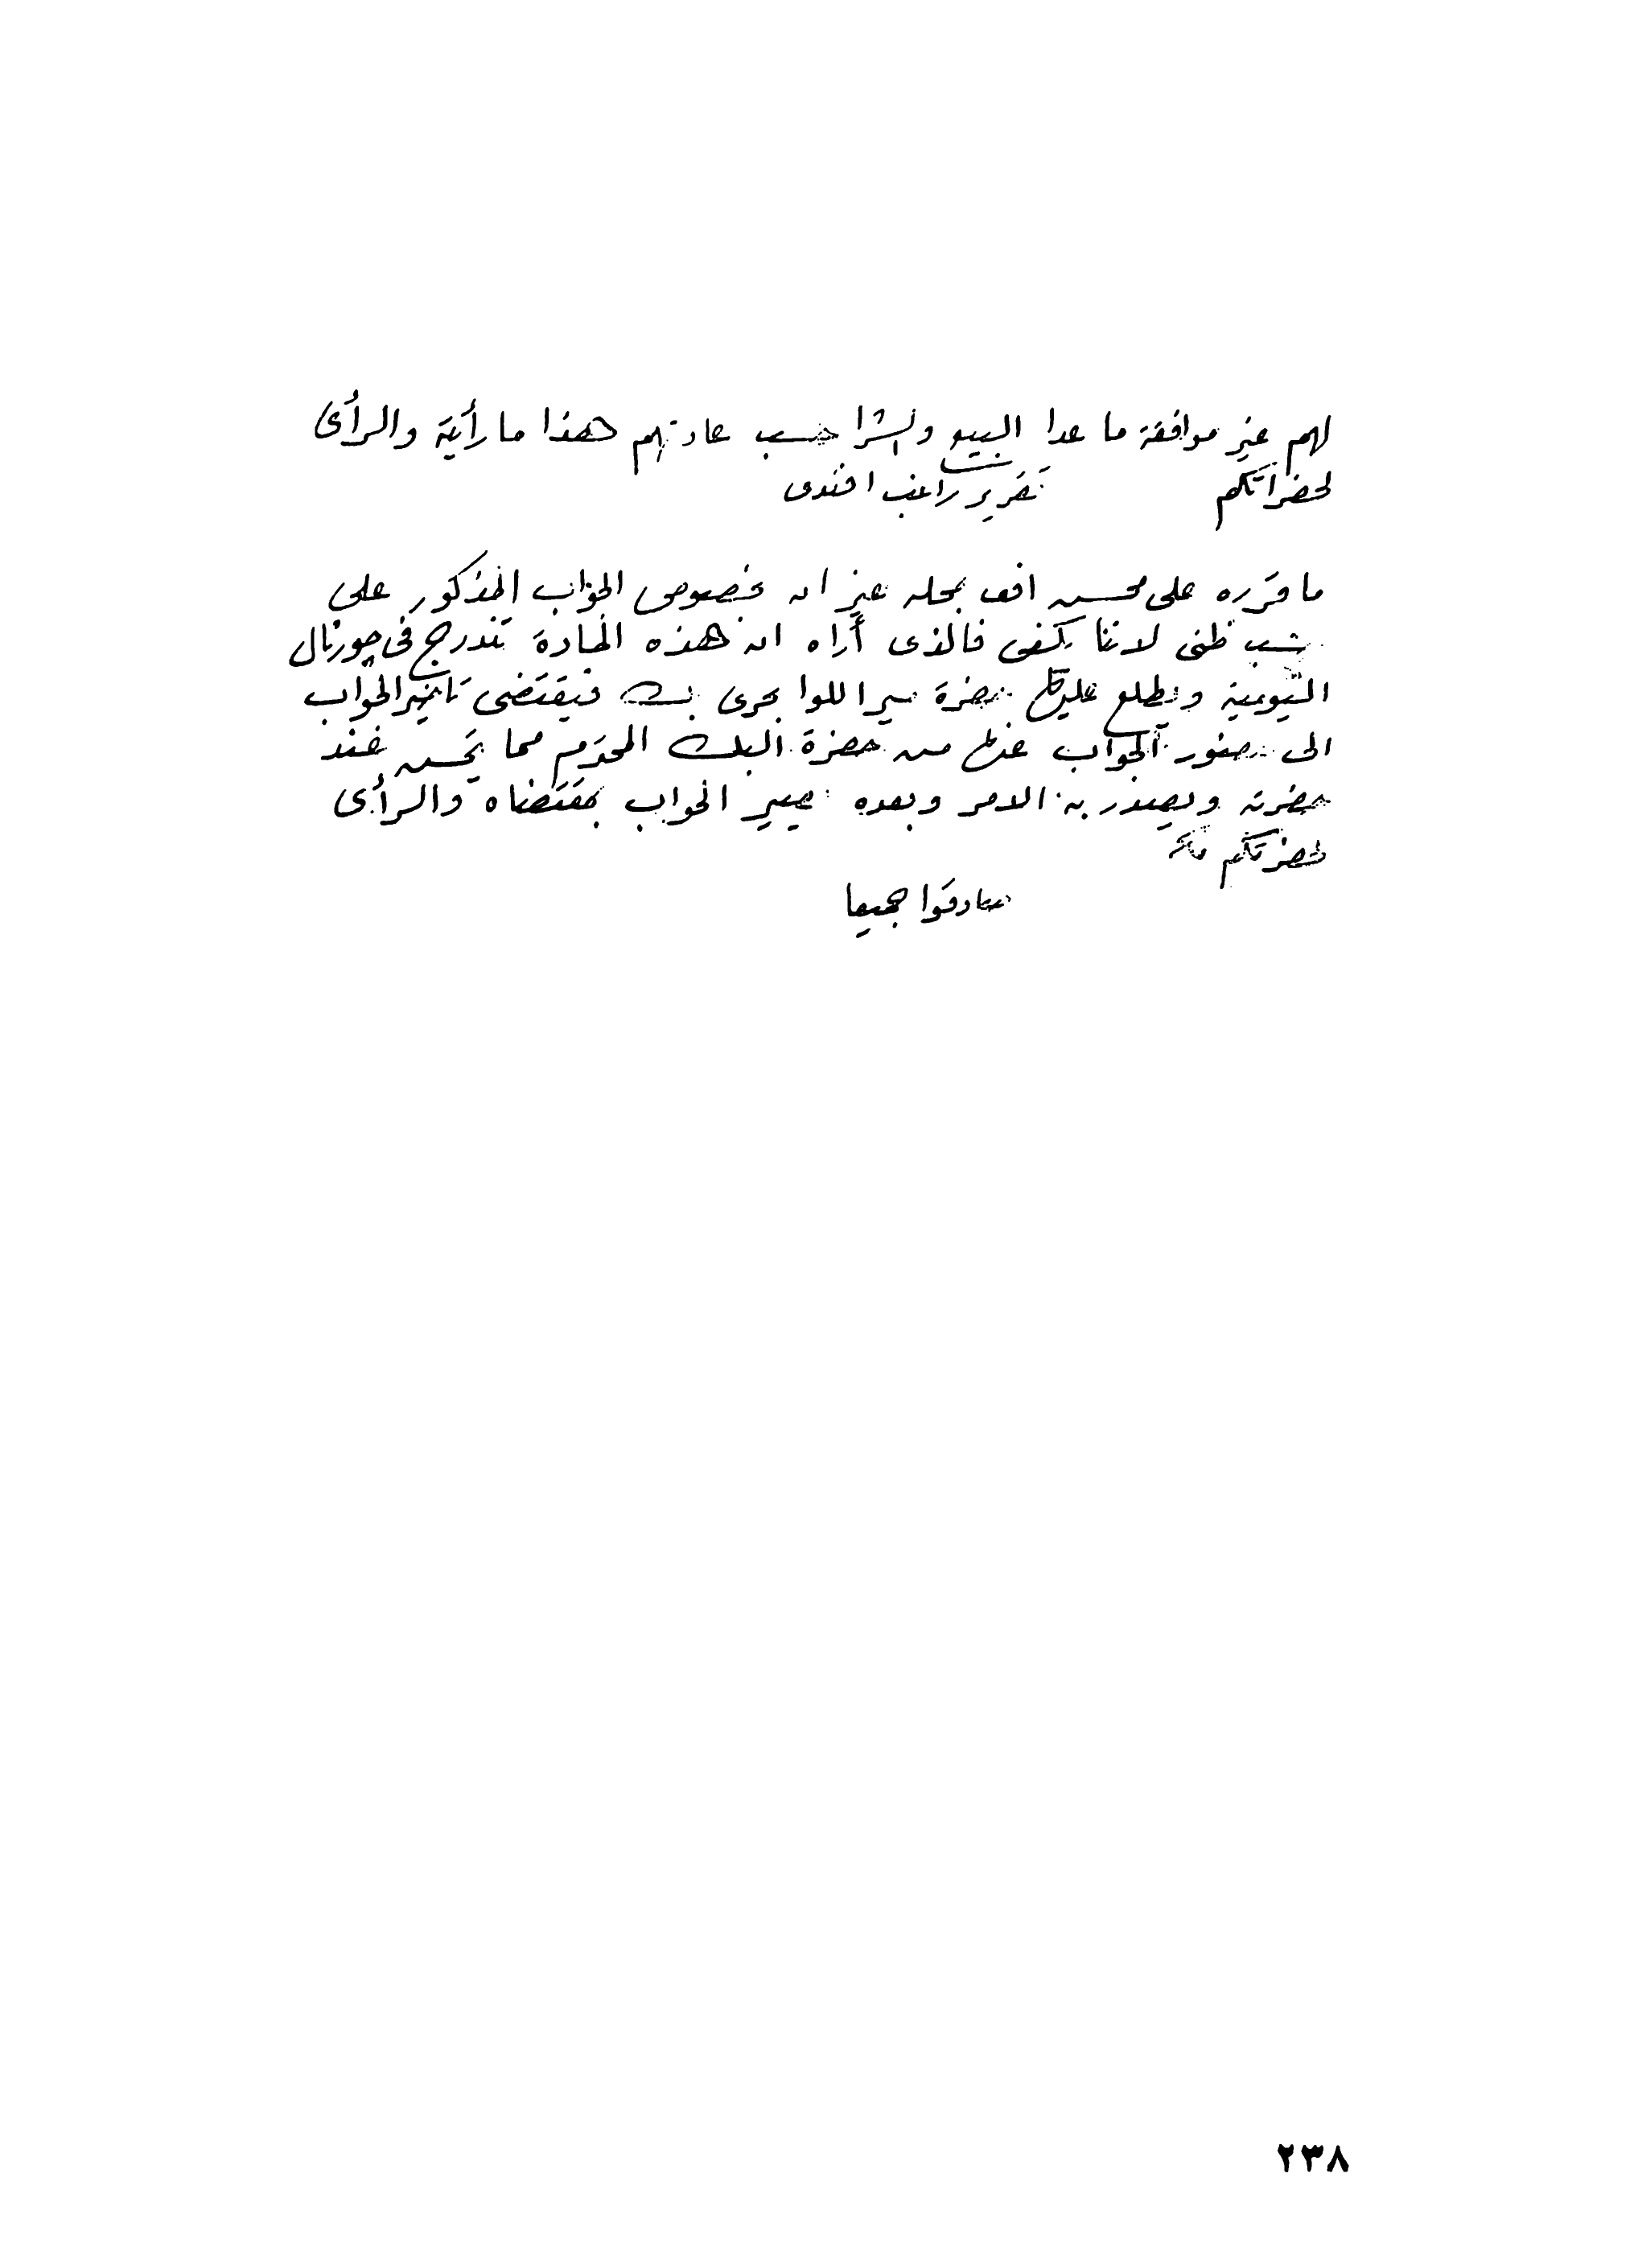 لهم غير موافقة ما عدا البيع والشرا حسب عادتهم هذا ما رأيته والرأى
لحضراتكم تقرير راغب افندى
ما قرره على محسن افـ بمحله غير ان خصوص الجواب المذكور على
حسب ظنى لاننا يكفى فالذى أراه ان هذه المادة تندرج فى جورنال
اليومية ويطلع عليها حضرة ميراللوا بحرى بك فيقتضى تاخير الجواب
الى صدور الجواب عنها من حضرة البك المحترم مما يحسن عند
حضرته ويصدر به الامر وبعده يصير الجواب بمقتضاه والرأى
لحضرتكم
صادقوا جميعا
٢٣٨